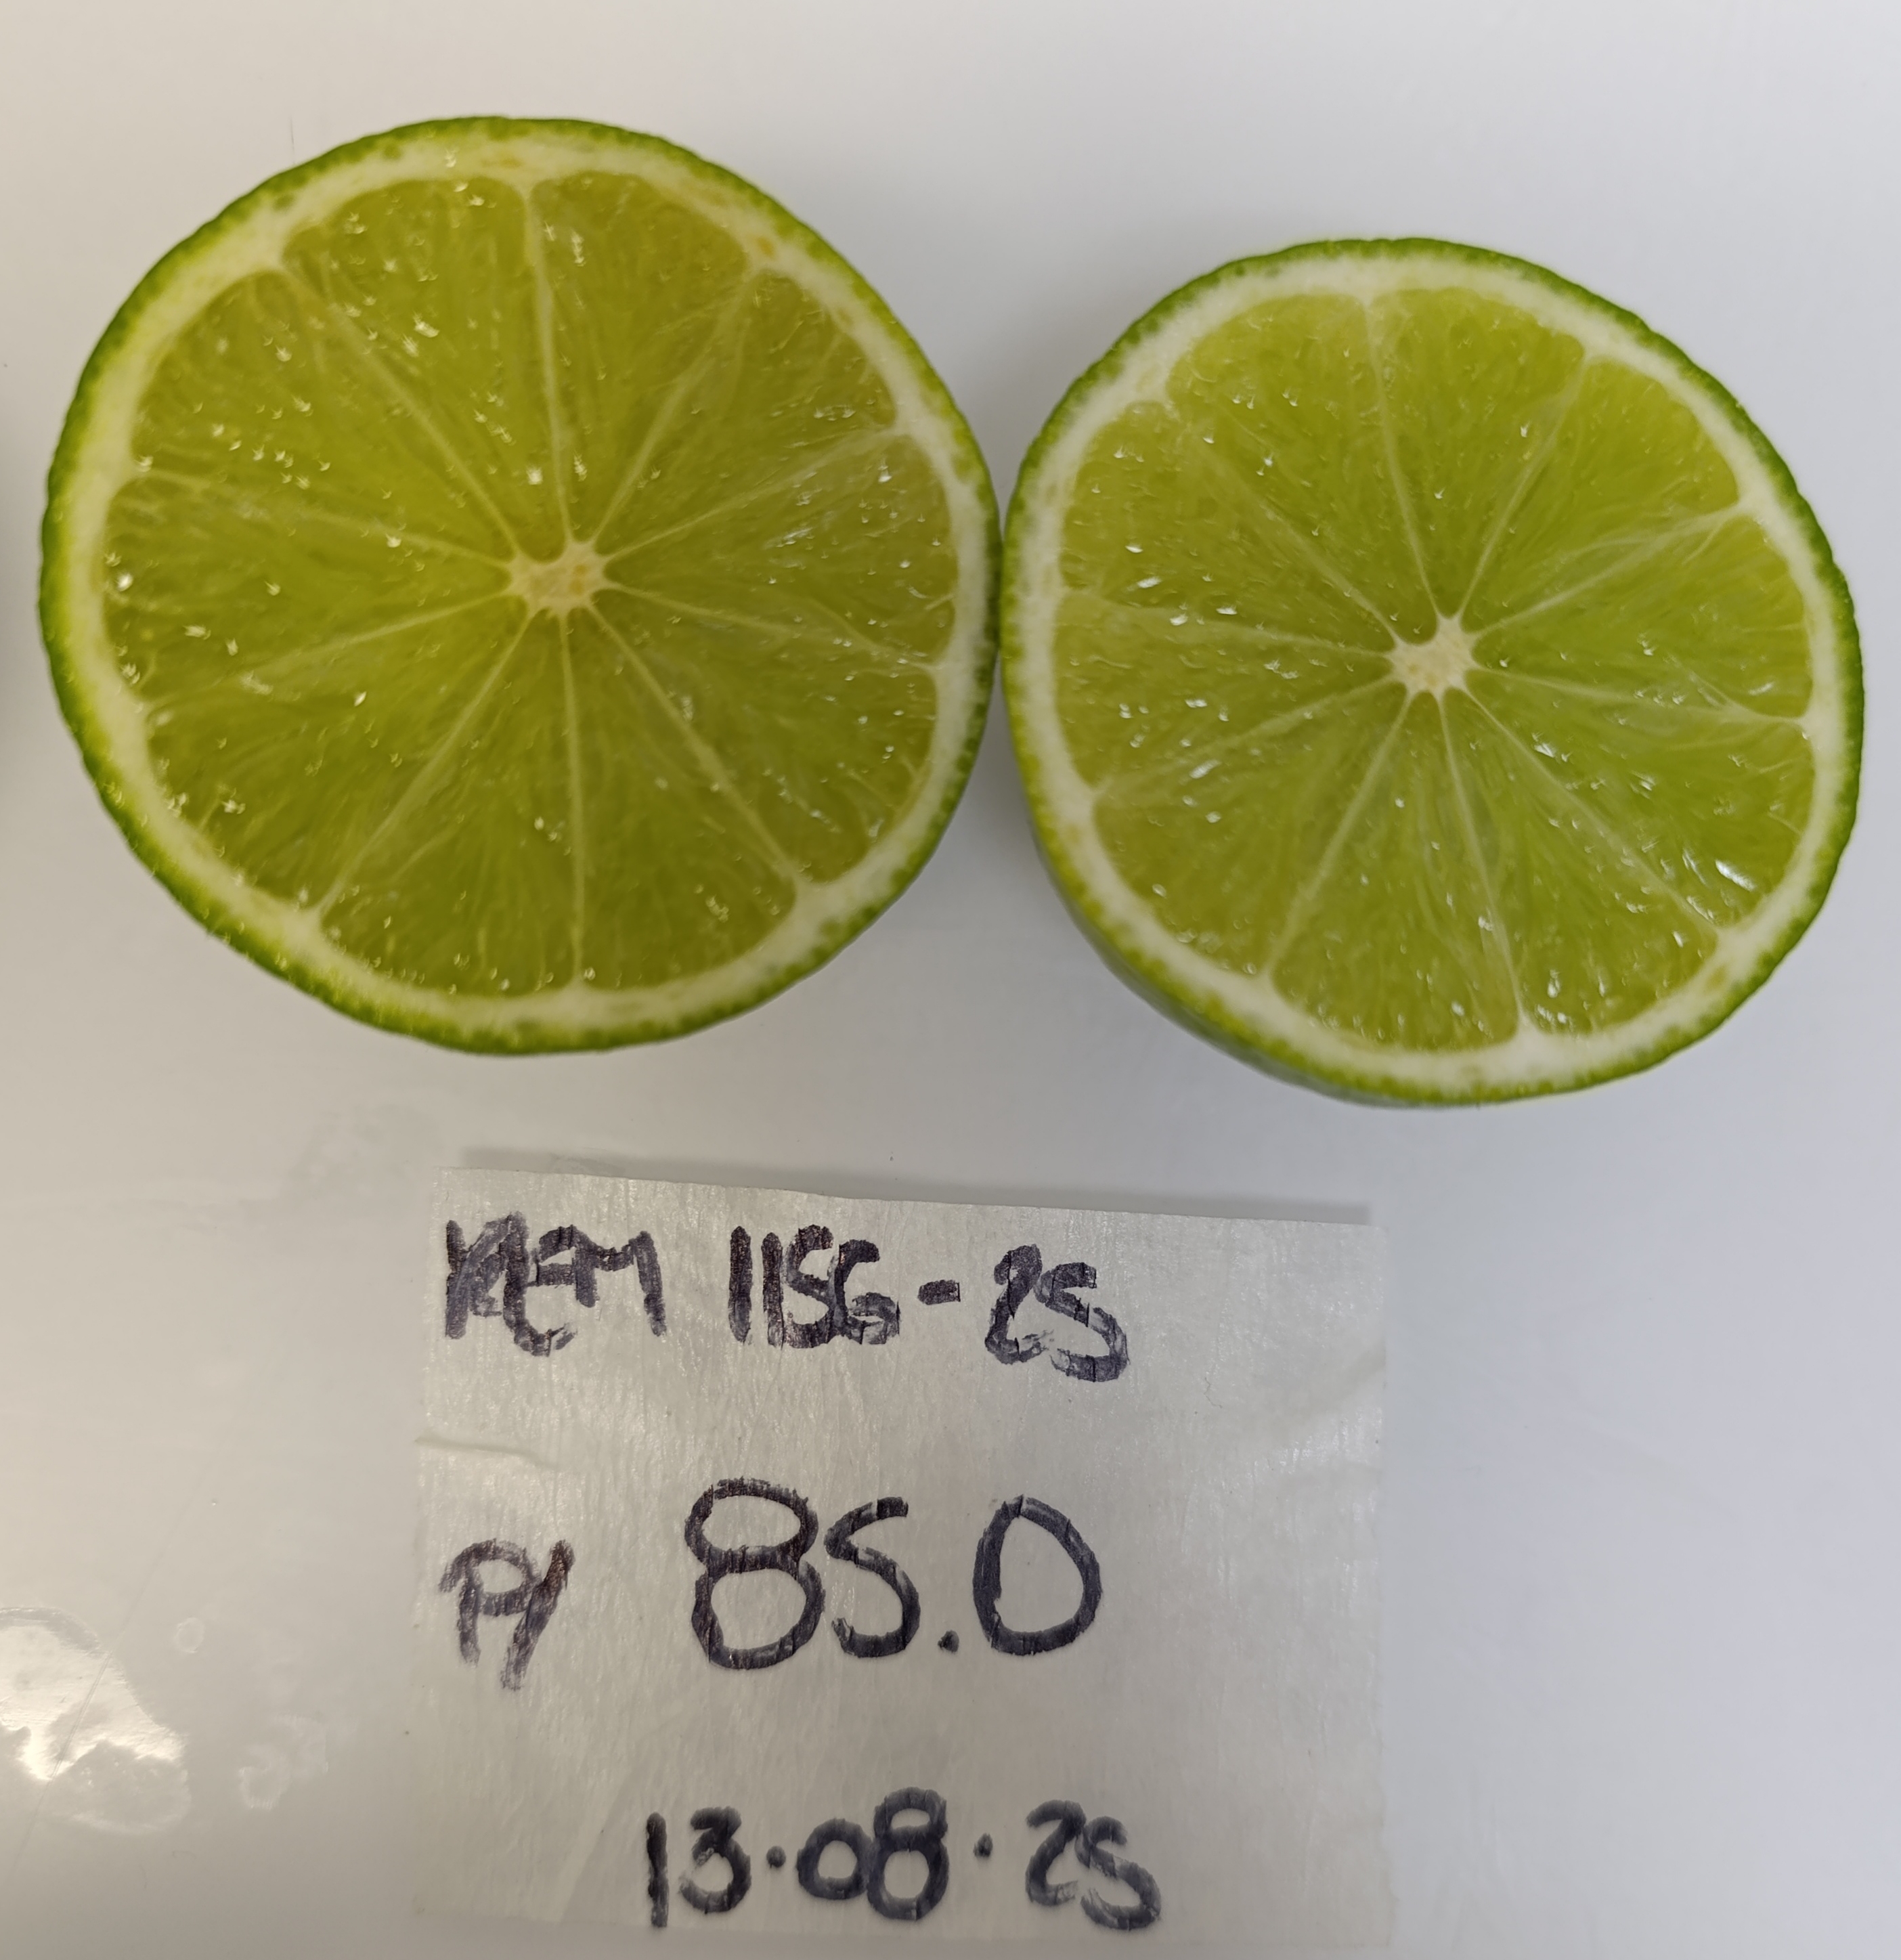 REM 1156-25
P/ 85.0
13.08.25